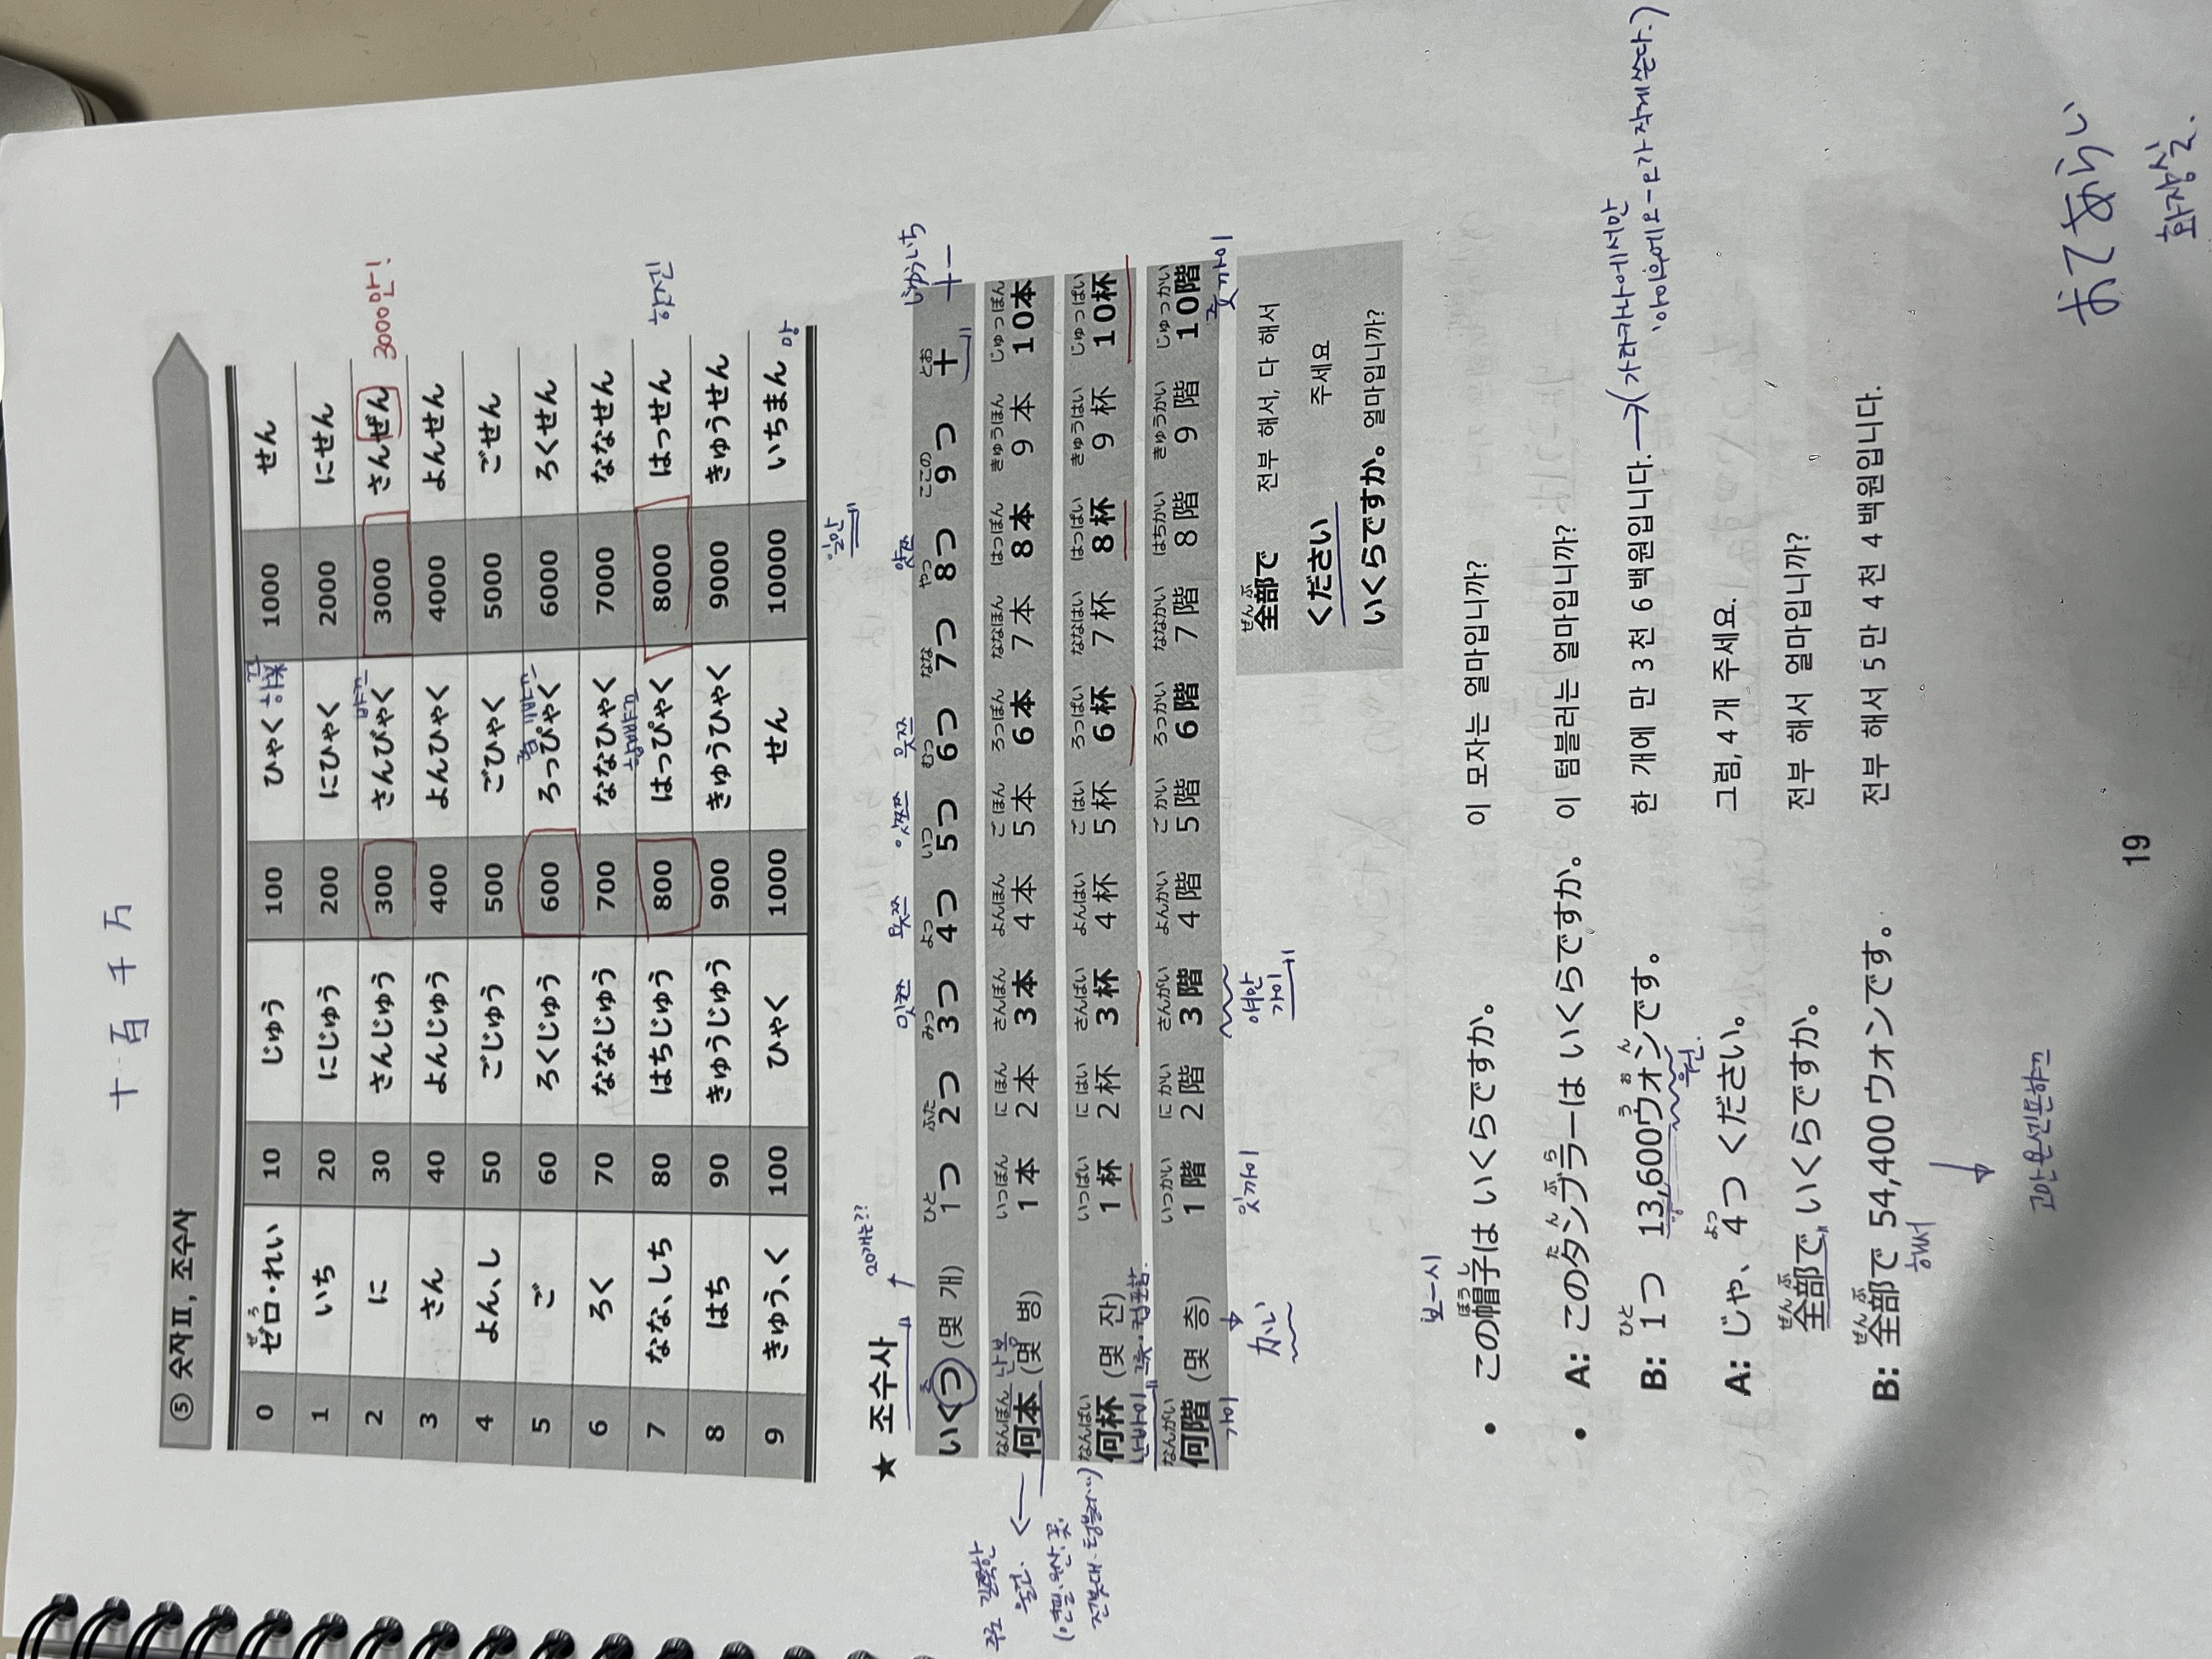 十 百 千 万
⑤ 숫자Ⅱ, 조수사
0 ゼロ・れい 10 じゅう 100 ひゃく 1000 せん
ぜろ
1 いち 20 にじゅう 200 にひゃく 2000 にせん
2 に 30 さんじゅう 300 さんびゃく 3000 さんぜん 3000만!
3 さん 40 よんじゅう 400 よんひゃく 4000 よんせん
4 よん、し 50 ごじゅう 500 ごひゃく 5000 ごせん
5 ご 60 ろくじゅう 600 ろっぴゃく 6000 ろくせん
6 ろく 70 ななじゅう 700 ななひゃく 7000 ななせん
7 なな、しち 80 はちじゅう 800 はっぴゃく 8000 はっせん
8 はち 90 きゅうじゅう 900 きゅうひゃく 9000 きゅうせん
9 きゅう、く 100 ひゃく 1000 せん 10000 いちまん 망
일만
★ 조수사 20개는??
밋쯔 욧쯔 이쯔쯔 뭇쯔 얏쯔 じゅういち
ひと ふた みっ よっ いつ むっ なな やっ ここの とお
いくつ (몇 개) 1つ 2つ 3つ 4つ 5つ 6つ 7つ 8つ 9つ 十 十一
なんぼん 난봉 いっぽん にほん さんぼん よんほん ごほん ろっぽん ななほん はっぽん きゅうほん じゅっぽん
何本 (몇 병) 1本 2本 3本 4本 5本 6本 7本 8本 9本 10本
なんばい いっぱい にはい さんばい よんはい ごはい ろっぱい ななはい はっぱい きゅうはい じゅっぱい
何杯 (몇 잔) 1杯 2杯 3杯 4杯 5杯 6杯 7杯 8杯 9杯 10杯
난바이
なんがい いっかい にかい さんがい よんかい ごかい ろっかい ななかい はちかい きゅうかい じゅっかい
何階 (몇 층) 1階 2階 3階 4階 5階 6階 7階 8階 9階 10階
가이 잇까이 여만 가이 쥿까이
주로 길쭉한
물건.
(연필, 우산, 꽃,
전봇대, 텀블러..)
ぜんぶ
全部で 전부 해서, 다 해서
ください 주세요
いくらですか。 얼마입니까?
보-시
ぼうし
• この帽子は いくらですか。 이 모자는 얼마입니까?
たんぶら
• A: このタンブラーは いくらですか。 이 텀블러는 얼마입니까?
ひと うぉん
B: 1つ 13,600ウォンです。 한 개에 만 3천 6백원입니다. →(가타카나에서만
'아이우에오'-요가 작게쓴다.)
원.
よっ
A: じゃ、4つ ください。 그럼, 4개 주세요.
ぜんぶ
全部で いくらですか。 전부 해서 얼마입니까?
ぜんぶ
B: 全部で 54,400ウォンです。 전부 해서 5만 4천 4백원입니다.
해서
고만욘센욘햐끄
19
おてあらい
화장실.